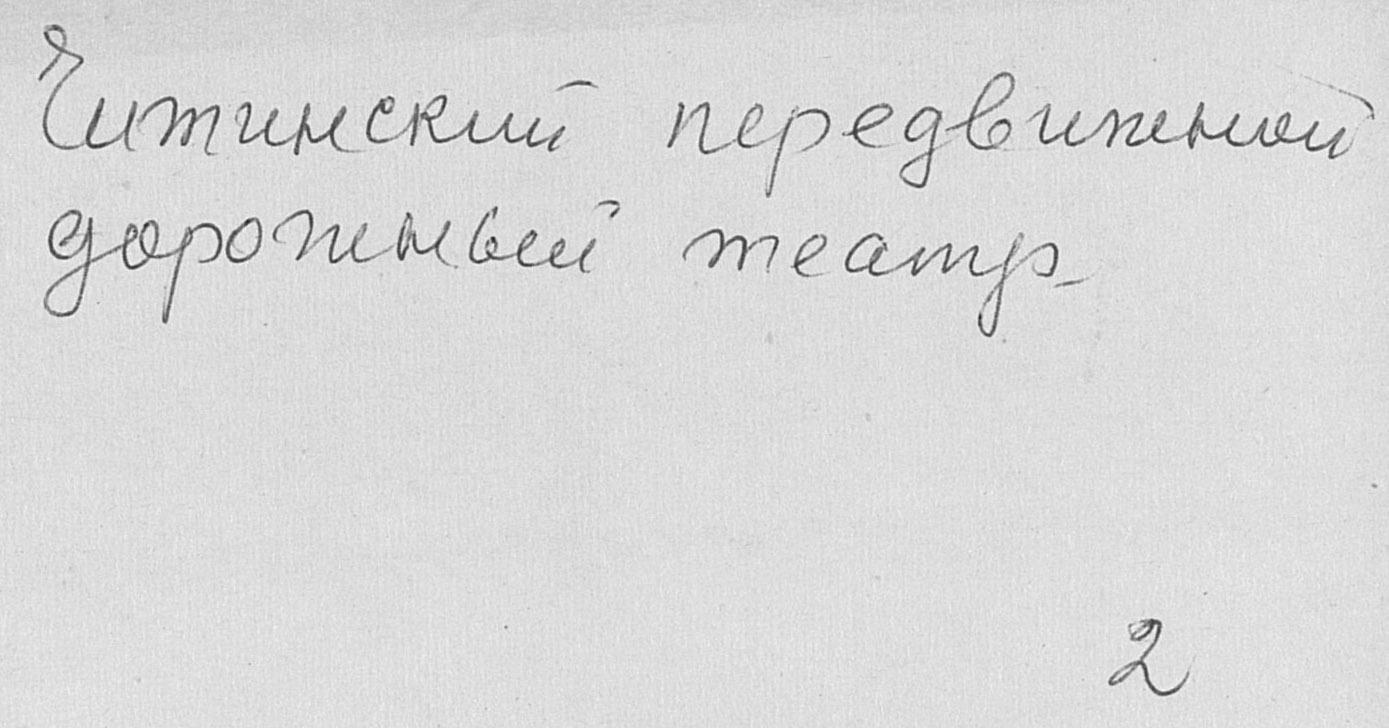 Читинский передвижной
дорожный театр
2